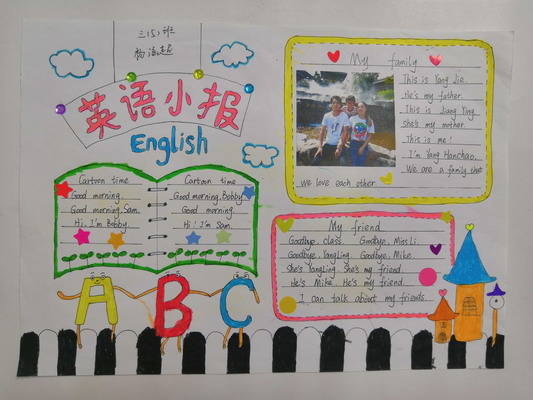 三(5)班
英语小报
English
Cartoon time
Good morning.
Good morning, Sam.
Hi, I'm Bobby.
Cartoon time
Good morning, Bobby.
Good morning.
Hi! I'm Sam.
ABC
My family
This is Yang Jie.
He's my father.
This is Jiang Ying.
She's my mother.
This is me!
I'm Yang Hanchao.
We are a family that
we love each other
My friend
Goodbye, class. Goodbye, Miss Li.
Goodbye, YangLing. Goodbye, Mike.
She's YangLing. She's my friend.
He's Mike. He's my friend.
I can talk about my friends.